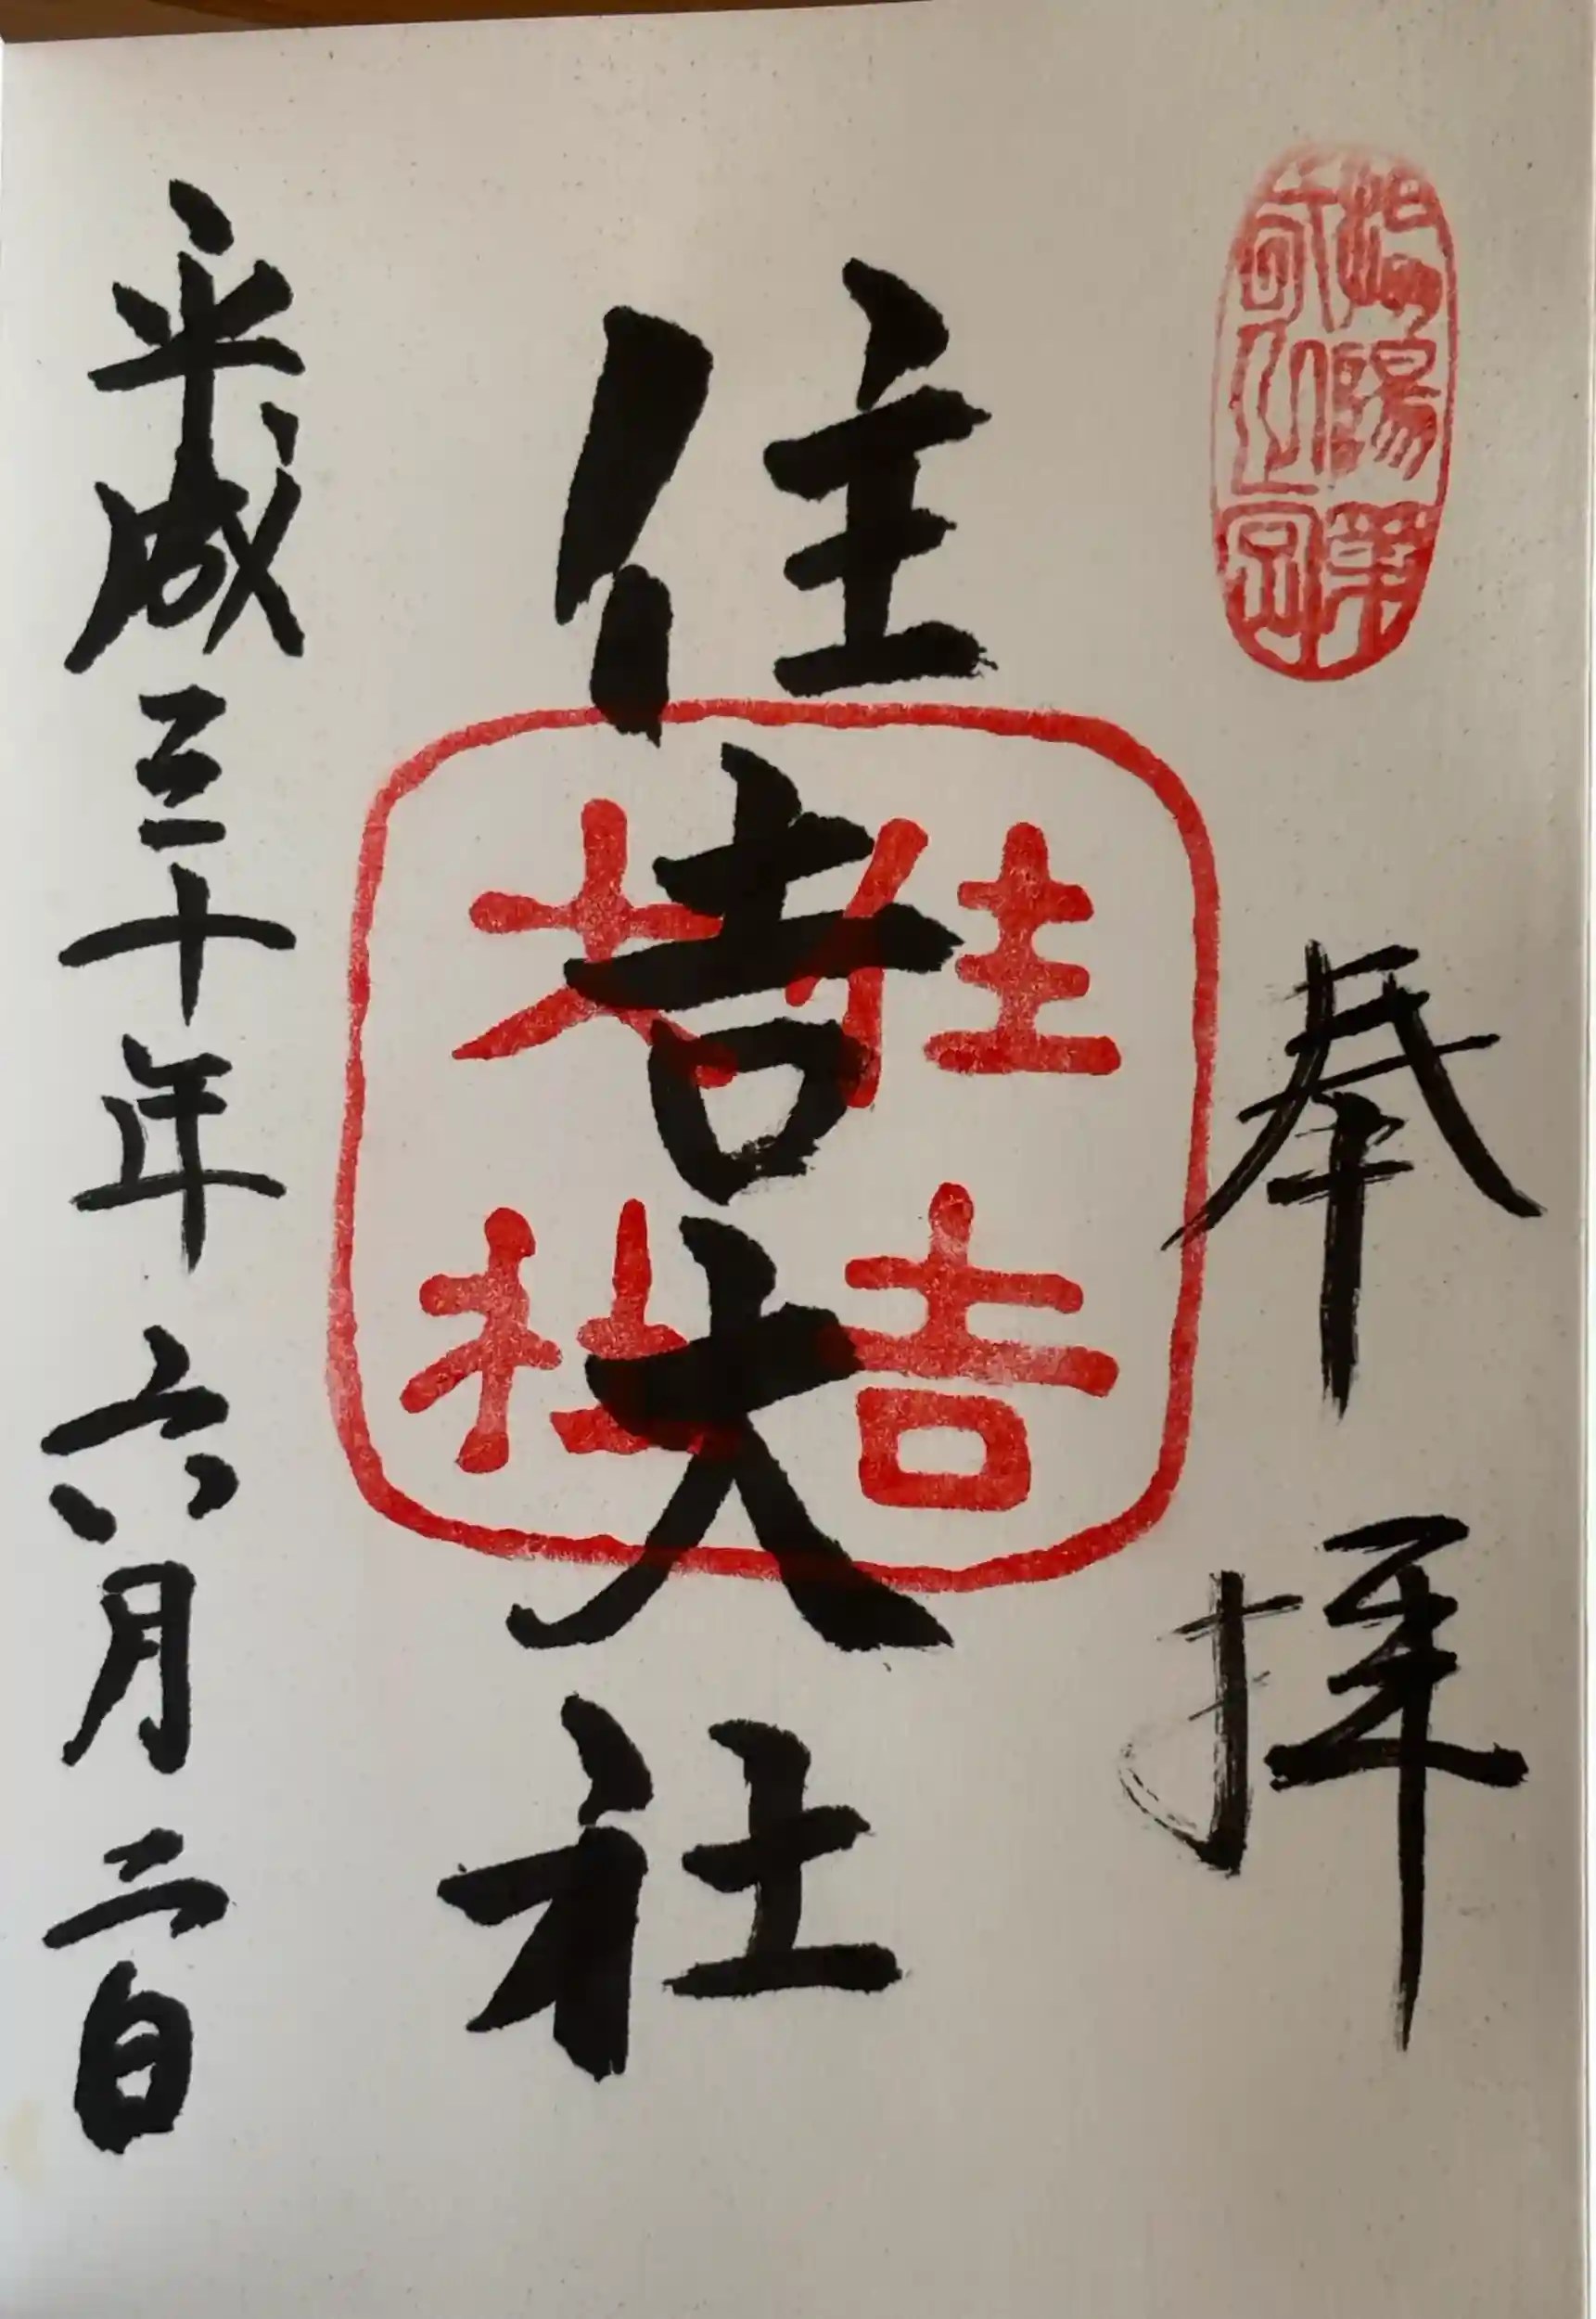 奉拝
住吉大社
住吉
大社
平成三十年六月二日